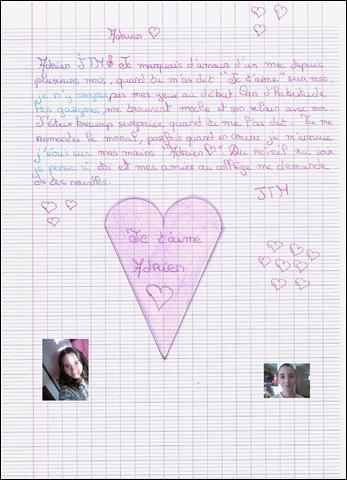 Adrien
Adrien JTM Je manquais d'amour d'un mec depuis
plusieurs mois, quand tu m'as dit "Je t'aime" sur msn
je n'y croyais pas mes yeux au début Car d'habitude
les garçons me trouvait moche et son vilain avec moi.
J'étais beaucoup surprise quand tu me l'as dit. Tu me
remontes le moral, parfois quand en cours je m'ennuie
j'écris sur mes mains "Adrien". Du réveil au soir
je pense à toi et mes amies au collège me demande
de tes nouvelles.
JTM
Je t'aime
Adrien